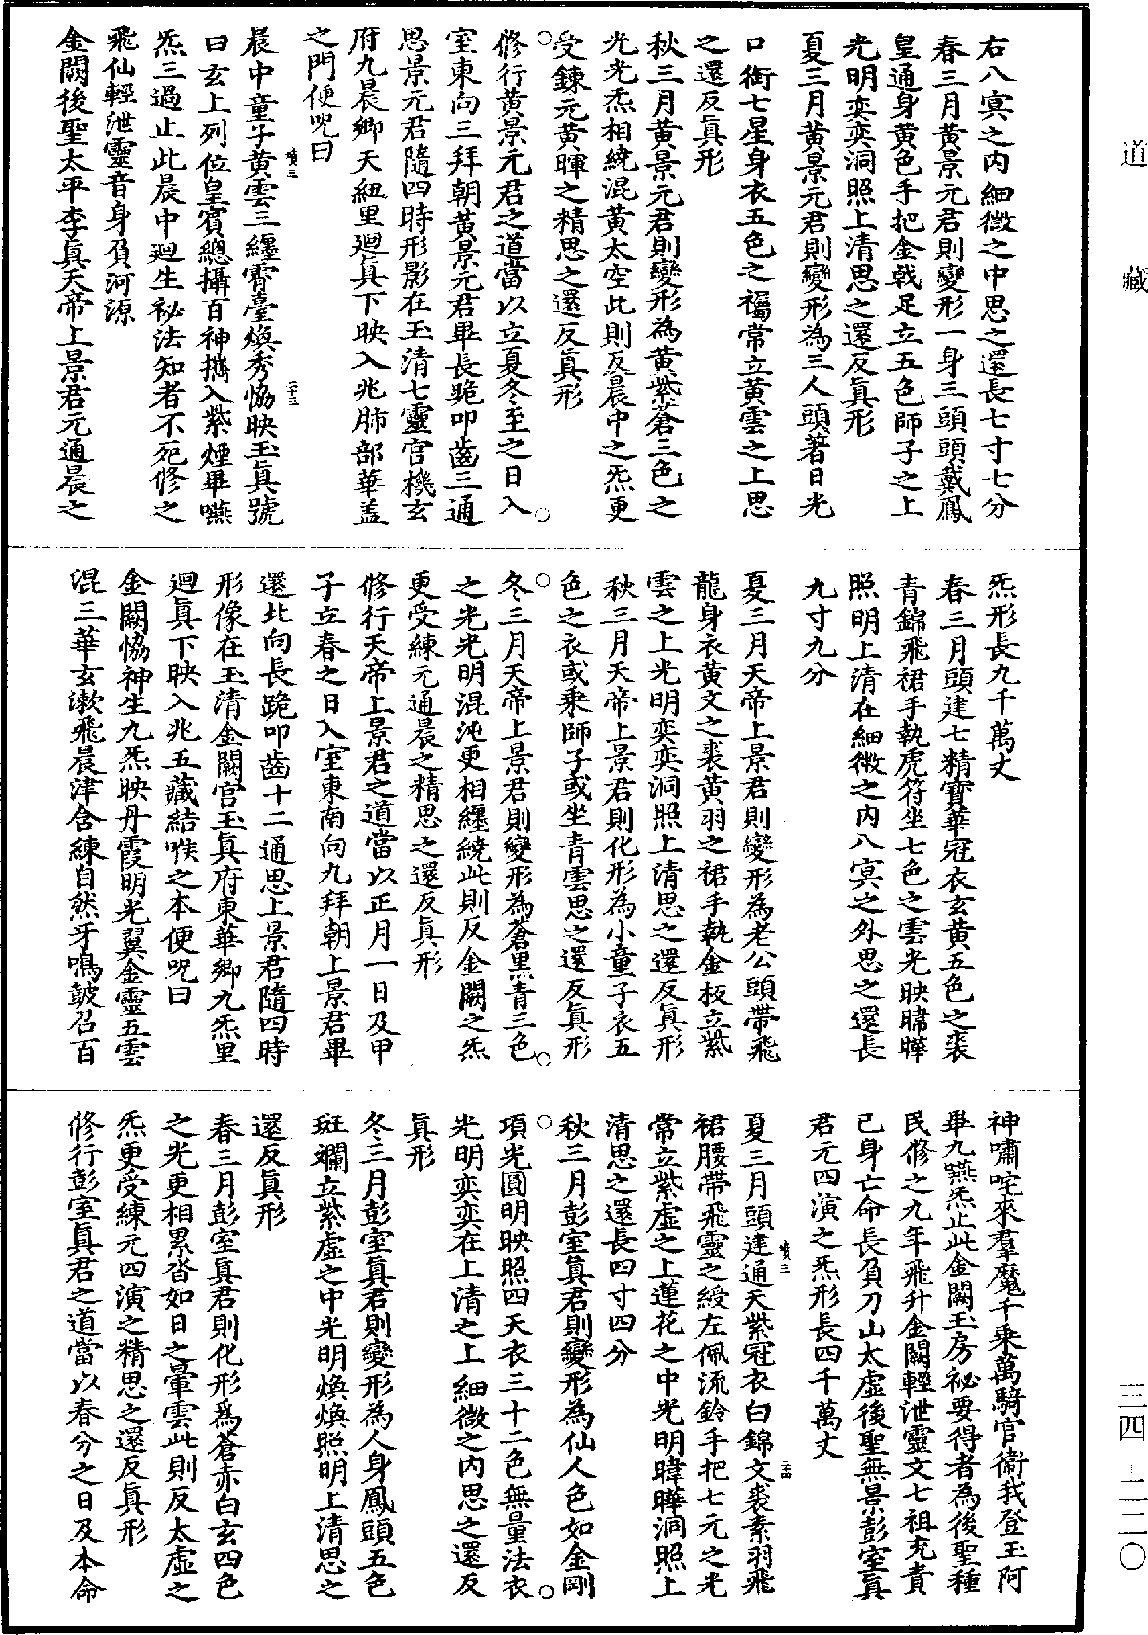 道藏
三四-一二〇
右八冥之內細微之中思之還長七寸七分
春三月黃景元君則變形一身三頭頭戴鳳
皇通身黃色手把金戟足立五色師子之上
光明奕奕洞照上清思之還反眞形
夏三月黃景元君則變形為三人頭著日光
口銜七星身衣五色之襡常立黃雲之上思
之還反眞形
秋三月黃景元君則變形為黃紫蒼三色之
光光炁相繞混黃太空此則反晨中之炁更
受鍊元黃暉之精思之還反眞形
修行黃景元君之道當以立夏冬至之日入
室東向三拜朝黃景元君畢長跪叩齒三通
思景元君隨四時形影在玉清七靈宮機玄
府九晨鄉天紐里迴眞下映入兆肺部華盖
之門便呪曰
晨中童子黃雲三纏霄臺煥秀恊映玉眞號
曰玄上列位皇賓總攝百神攜入紫煙畢嚥
炁三過止此晨中迴生祕法知者不死修之
飛仙輕泄靈音身負河源
金闕後聖太平李眞天帝上景君元通晨之
炁形長九千萬丈
春三月頭建七精寶華冠衣玄黃五色之裘
青錦飛裙手執虎符坐七色之雲光映暐曄
照明上清在細微之內八冥之外思之還長
九寸九分
夏三月天帝上景君則變形為老公頭帶飛
龍身衣黃文之裘黃羽之裙手執金板立紫
雲之上光明奕奕洞照上清思之還反眞形
秋三月天帝上景君則化形為小童子衣五
色之衣或乘師子或坐青雲思之還反眞形
冬三月天帝上景君則變形為蒼黑青三色
之光光明混沌更相纏繞此則反金闕之炁
更受練元通晨之精思之還反眞形
修行天帝上景君之道當以正月一日及甲
子立春之日入室東南向九拜朝上景君畢
還北向長跪叩齒十二通思上景君隨四時
形像在玉清金闕宮玉眞府東華鄉九炁里
迴眞下映入兆五藏結喉之本便呪曰
金闕恊神生九炁映丹霞明光翼金靈五雲
混三華玄漱飛晨津含練自然牙鳴皷召百
神嘯咤來羣魔千乘萬騎官衞我登玉阿
畢九嚥炁止此金闕玉房祕要得者為後聖種
民修之九年飛升金闕輕泄靈文七祖充責
已身亡命長負刀山太虛後聖無景彭室眞
君元四演之炁形長四千萬丈
夏三月頭建通天紫冠衣白錦文裘素羽飛
裙腰帶飛靈之綬左佩流鈴手把七元之光
常立紫虛之上蓮花之中光明暐曄洞照上
清思之還長四寸四分
秋三月彭室眞君則變形為仙人色如金剛
項光圓明映照四天衣三十二色無量法衣
光明奕奕在上清之上細微之內思之還反
眞形
冬三月彭室眞君則變形為人身鳳頭五色
斑斕立紫虛之中光明煥煥照明上清思之
還反眞形
春三月彭室眞君則化形為蒼赤白玄四色
之光更相累沓如日之暈雲此則反太虛之
炁更受練元四演之精思之還反眞形
修行彭室眞君之道當以春分之日及本命